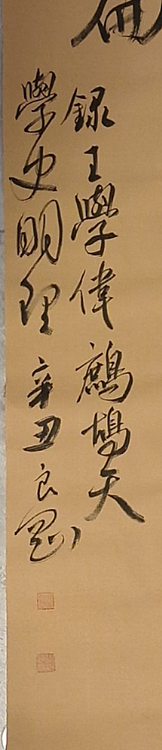 録王學偉鷓鴣天
學史明理辛丑良